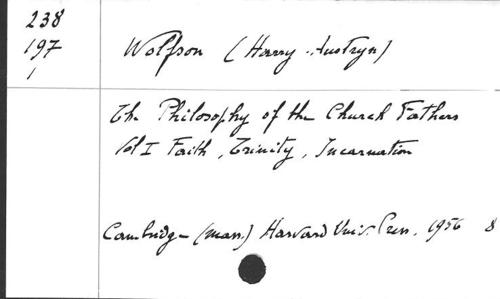 238
197
1
Wolfson (Harry Austryn)
The Philosophy of the Church Fathers
Vol I Faith, Trinity, Incarnation
Cambridge (Mass.) Harvard Univ. Press. 1956 8